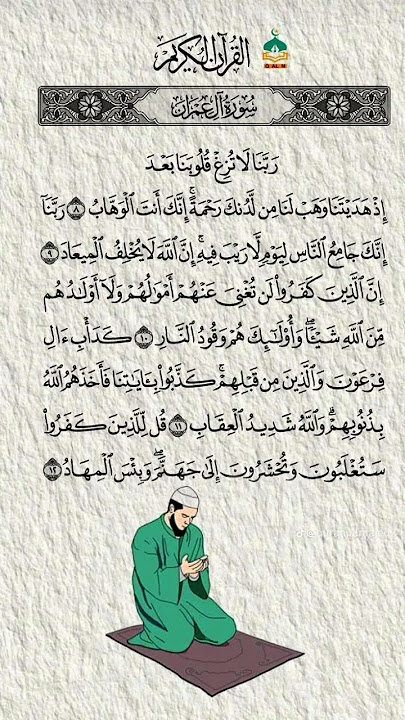 القرآن الكريم
QALM
سورة آل عمران
رَبَّنَا لَا تُزِغْ قُلُوبَنَا بَعْدَ
إِذْ هَدَيْتَنَا وَهَبْ لَنَا مِن لَّدُنكَ رَحْمَةً ۚ إِنَّكَ أَنتَ الْوَهَّابُ ٨ رَبَّنَا
إِنَّكَ جَامِعُ النَّاسِ لِيَوْمٍ لَّا رَيْبَ فِيهِ ۚ إِنَّ اللَّهَ لَا يُخْلِفُ الْمِيعَادَ ٩
إِنَّ الَّذِينَ كَفَرُوا لَن تُغْنِيَ عَنْهُمْ أَمْوَالُهُمْ وَلَا أَوْلَادُهُم
مِّنَ اللَّهِ شَيْئًا ۖ وَأُولَائِكَ هُمْ وَقُودُ النَّارِ ١٠ كَدَأْبِ ءَالِ
فِرْعَوْنَ وَالَّذِينَ مِن قَبْلِهِمْ ۚ كَذَّبُوا بِـَٔايَاتِنَا فَأَخَذَهُمُ اللَّهُ
بِذُنُوبِهِمْ ۗ وَاللَّهُ شَدِيدُ الْعِقَابِ ١١ قُل لِّلَّذِينَ كَفَرُوا
سَتُغْلَبُونَ وَتُحْشَرُونَ إِلَىٰ جَهَنَّمَ ۚ وَبِئْسَ الْمِهَادُ ١٢